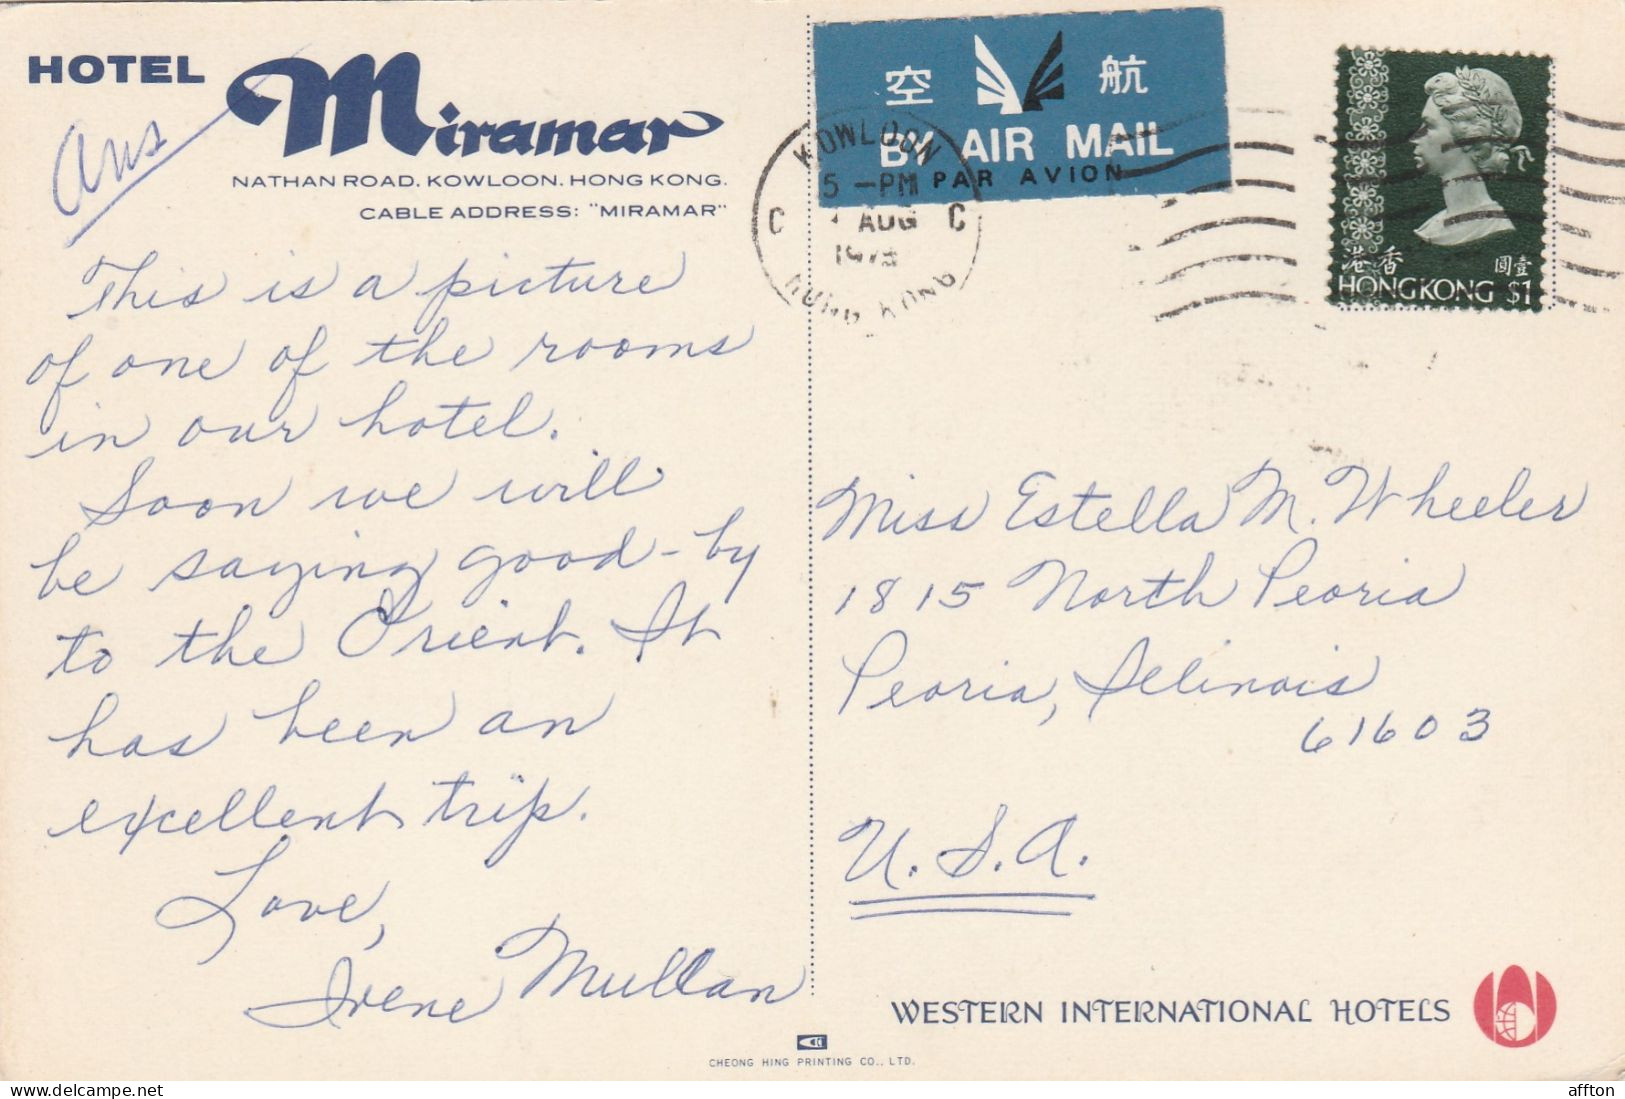 HOTEL Miramar
NATHAN ROAD. KOWLOON. HONG KONG.
CABLE ADDRESS: "MIRAMAR"
Ans
This is a picture
of one of the rooms
in our hotel.
Soon we will
be saying good-by
to the Orient. It
has been an
excellent trip.
Love,
Irene Mullan
空 航
BY AIR MAIL
PAR AVION
KOWLOON
5 -PM
C AUG C
HONG KONG
港香 圓壹
HONG KONG $1
Miss Estella M. Wheeler
1815 North Peoria
Peoria, Illinois
61603
U.S.A.
WESTERN INTERNATIONAL HOTELS
CHEONG HING PRINTING CO., LTD.
affton